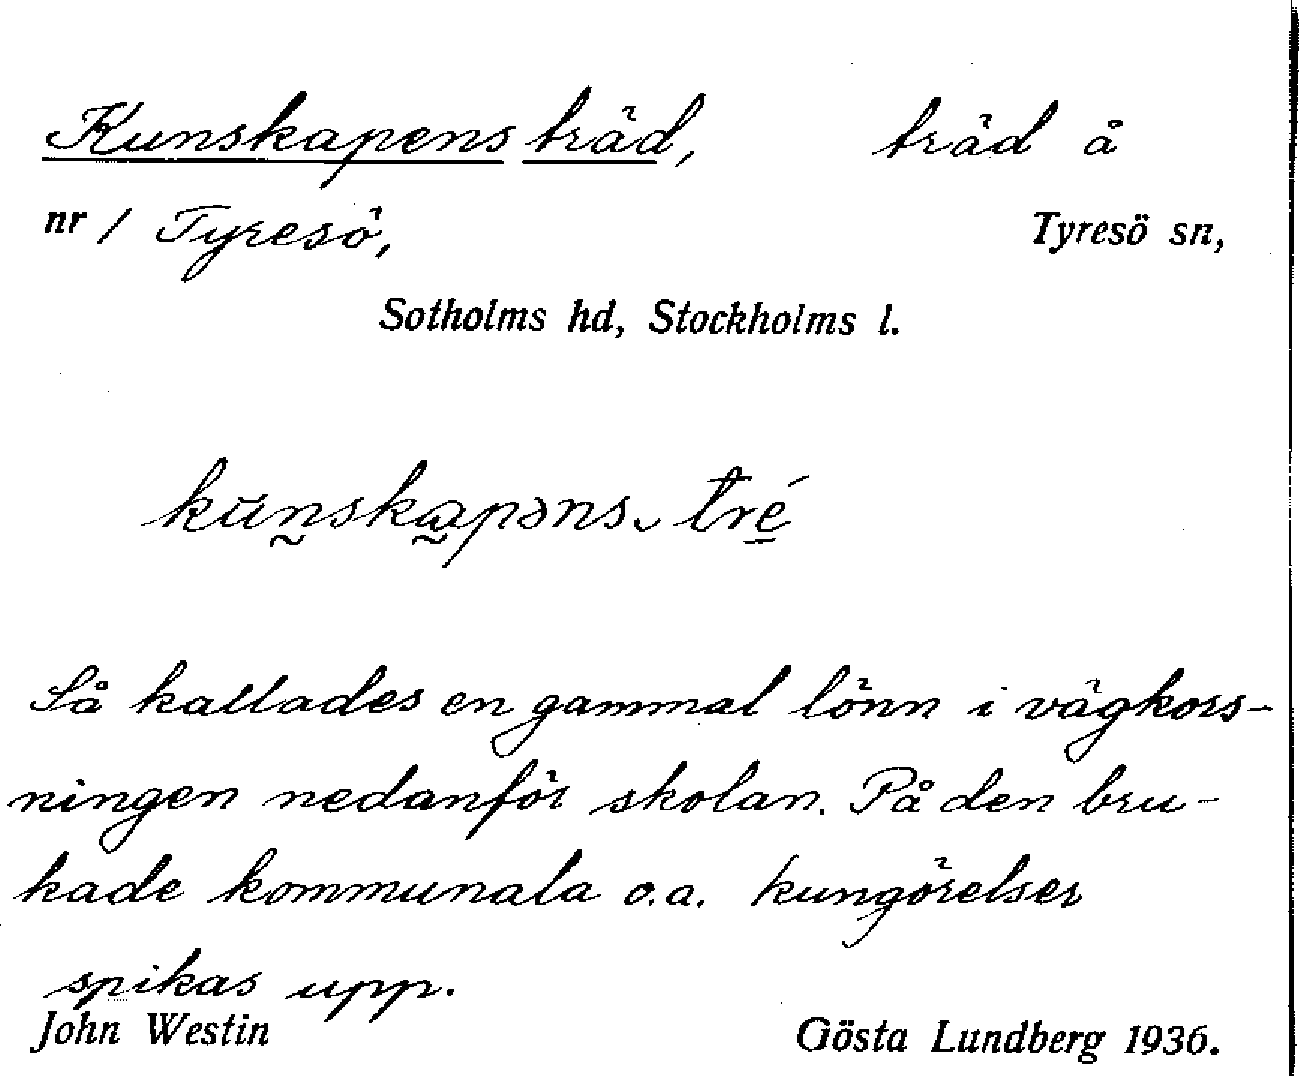 Kunskapens träd, träd å
nr 1 Tyresö, Tyresö sn,
Sotholms hd, Stockholms l.
kunskapəns tré
Så kallades en gammal lönn i vägkors-
ningen nedanför skolan. På den bru-
kade kommunala o.a. kungörelser
spikas upp.
John Westin Gösta Lundberg 1936.